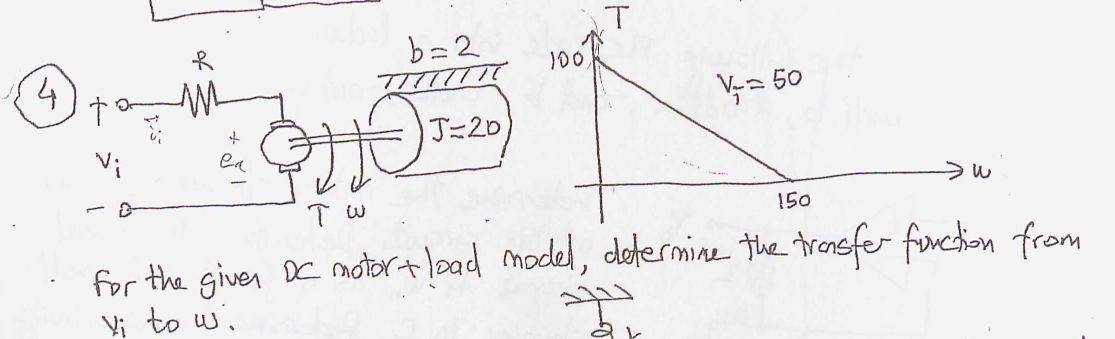 4
R
b = 2
J=20
+
i
Vi
+
ea
-
-
T
ω
T
100
Vi = 50
ω
150
for the given DC motor + load model, determine the transfer function from
Vi to ω.